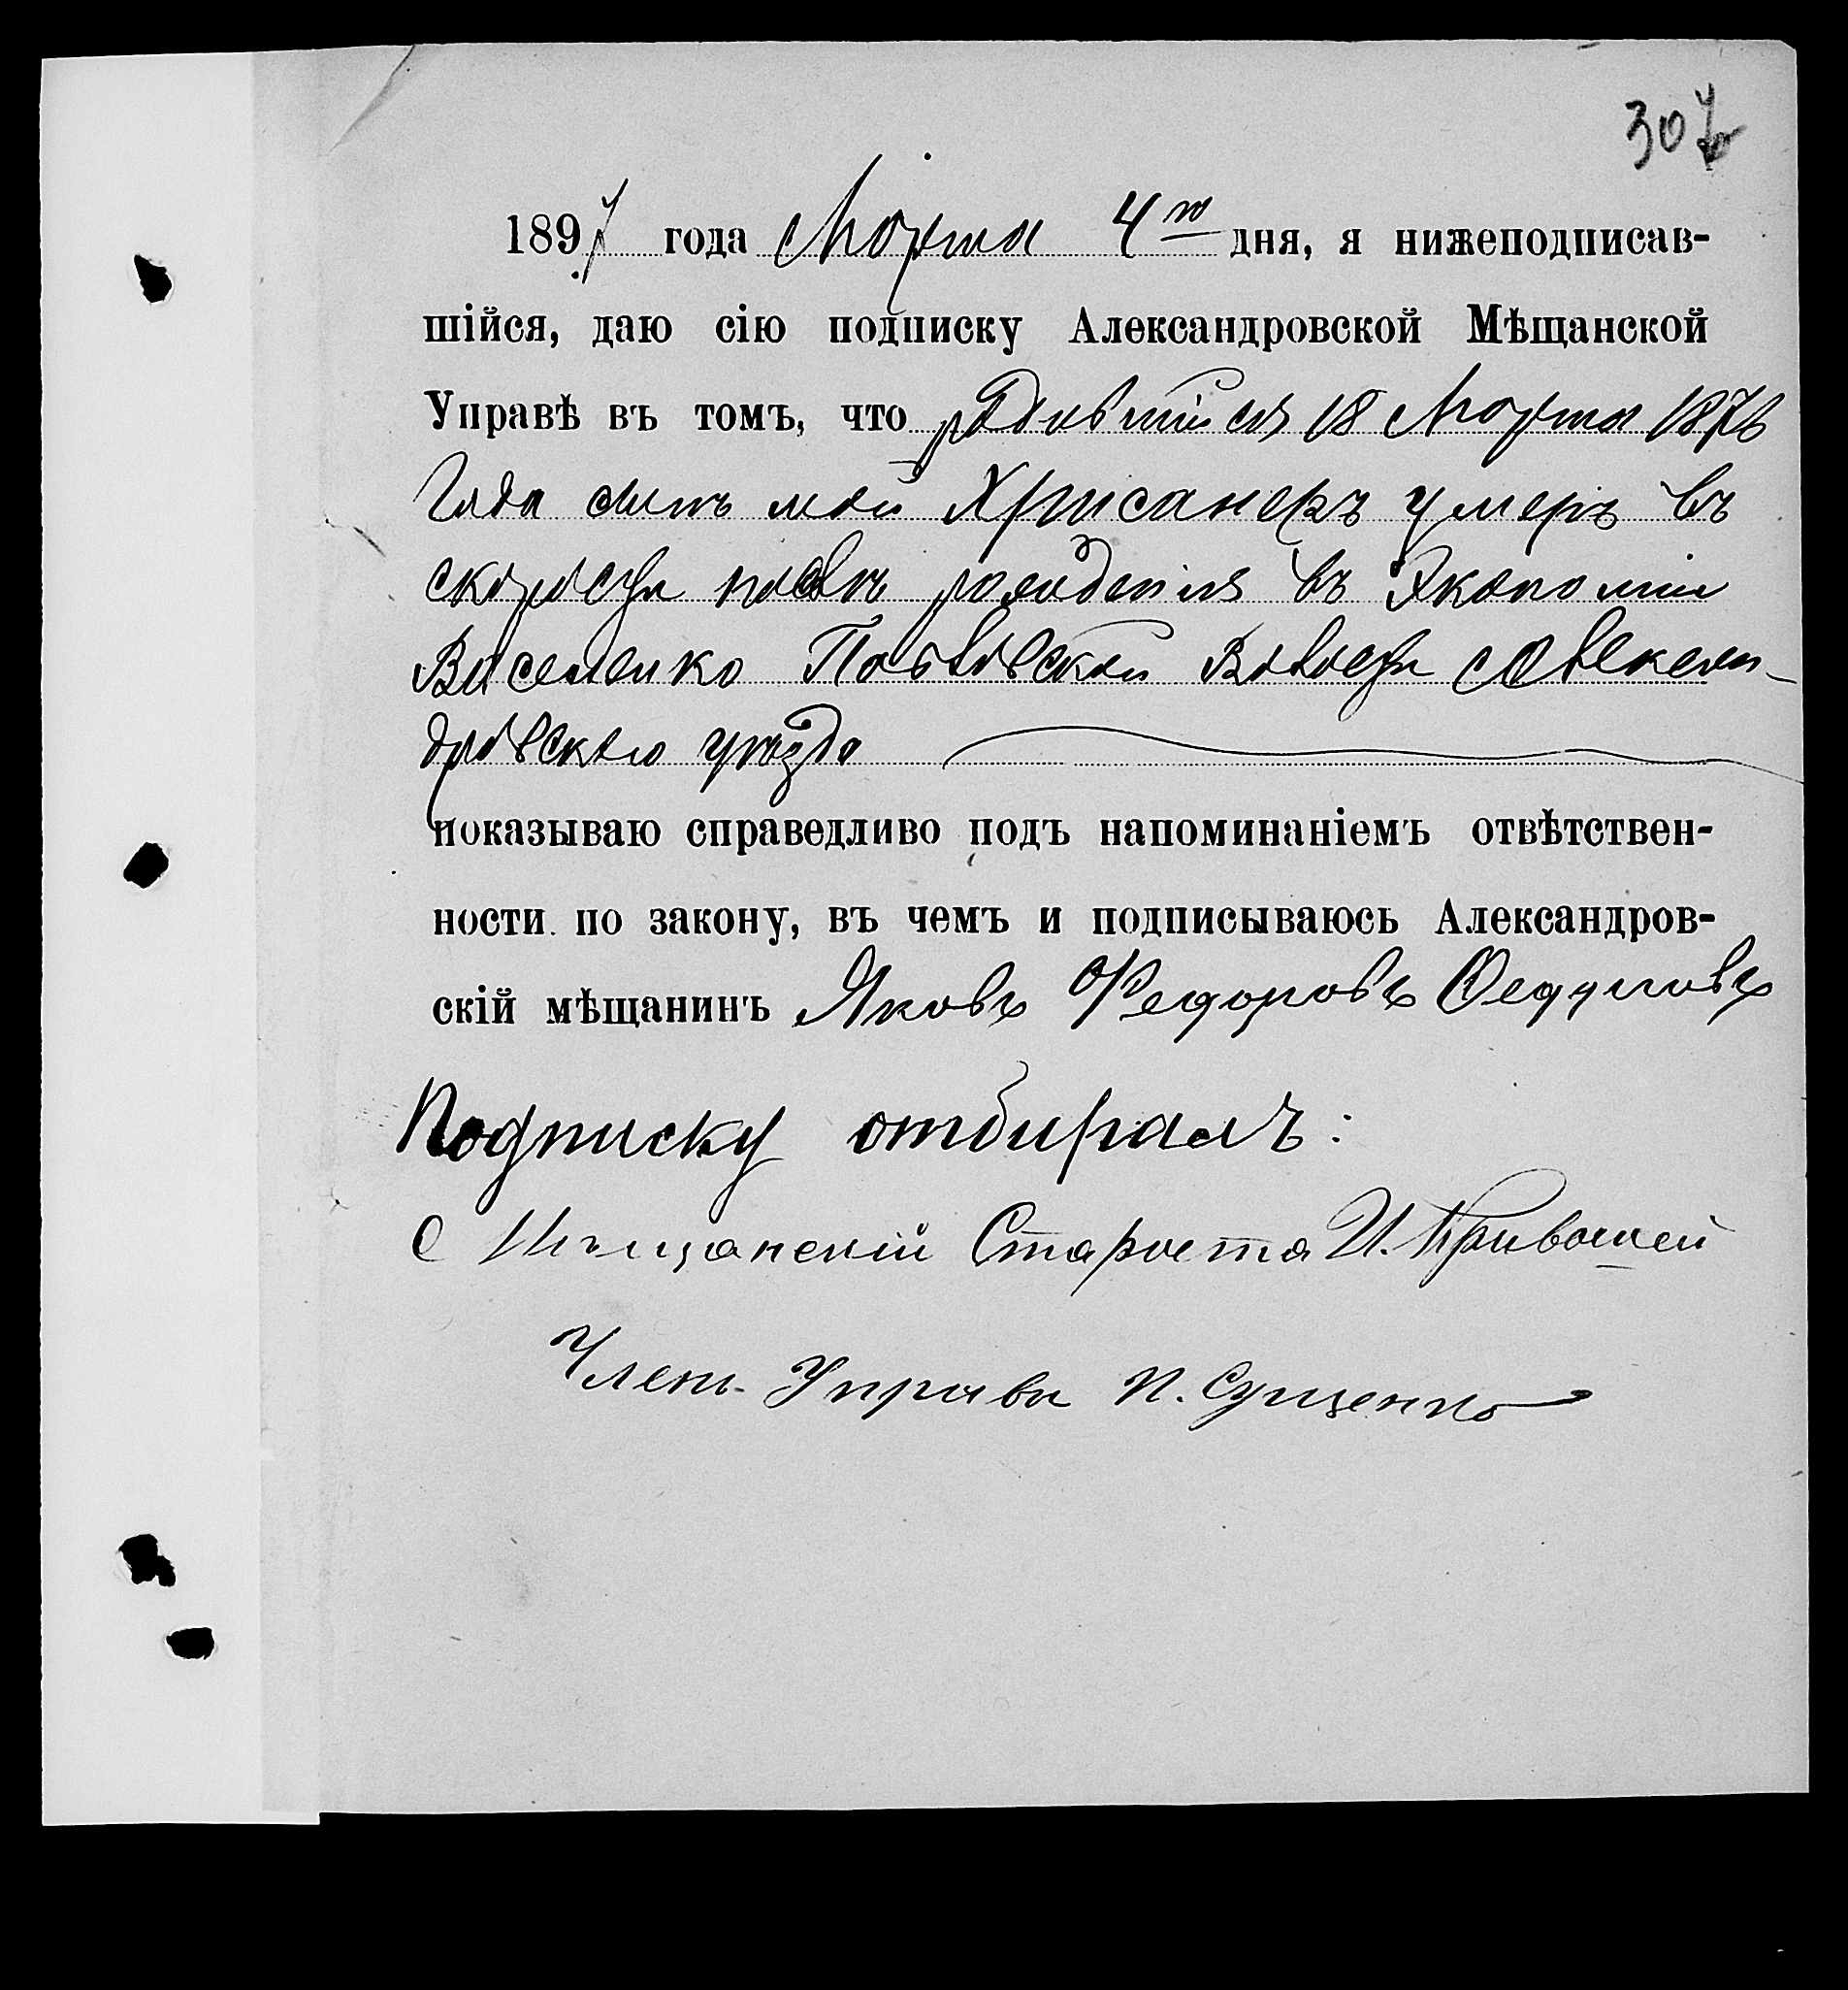 307
1897 года Марта 4го дня, я нижеподписав-
шійся, даю сію подписку Александровской Мѣщанской
Управѣ въ томъ, что родившійся 18 Марта 1876
Года сынъ мой Хрисанфъ умеръ въ
скорости послѣ рожденія въ Экономіи
Василенко Павловской Волости Алексан-
дровскаго уѣзда
показываю справедливо подъ напоминаніемъ отвѣтствен-
ности по закону, въ чемъ и подписываюсь Александров-
скій мѣщанинъ Яковъ Федоровъ
Подписку отбиралъ:
Мѣщанскій Староста И. Кривошей
Членъ Управы П. Сущенко